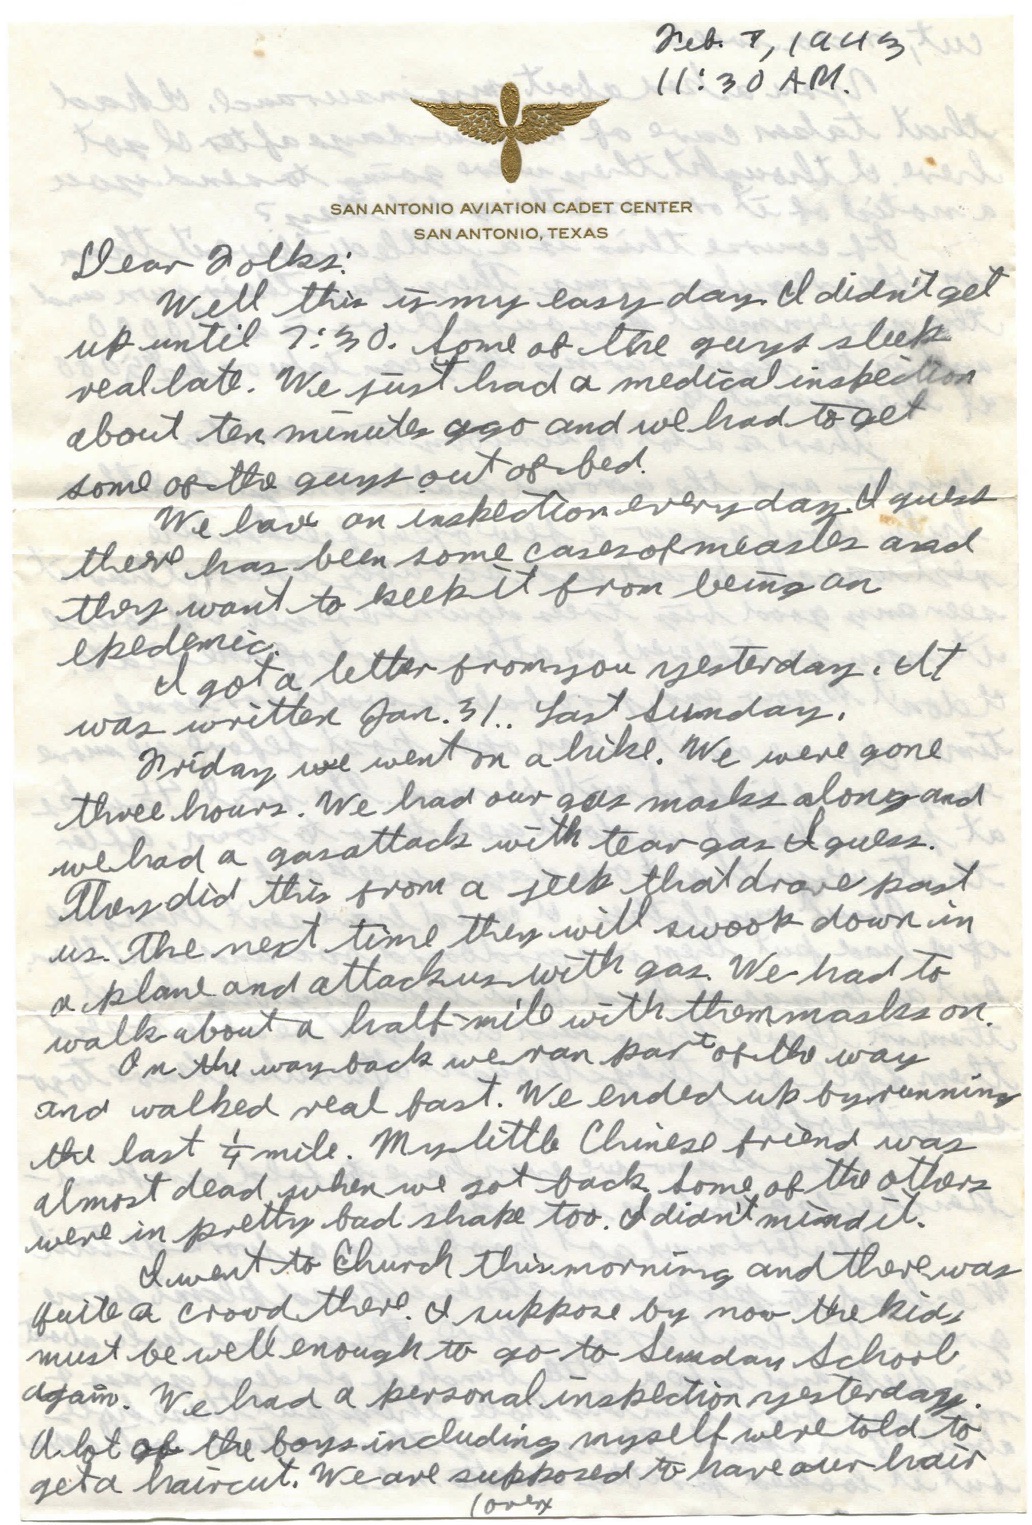 Feb. 7, 1943
11:30 AM.
SAN ANTONIO AVIATION CADET CENTER
SAN ANTONIO, TEXAS
Dear Folks:
Well this is my easy day. I didn't get
up until 7:30. Some of the guys sleep
real late. We just had a medical inspection
about ten minutes ago and we had to get
some of the guys out of bed.
We have an inspection every day. I guess
there has been some cases of measles and
they want to keep it from being an
epedemic.
I got a letter from you yesterday. It
was written Jan. 31.. Last Sunday.
Friday we went on a hike. We were gone
three hours. We had our gas masks along and
we had a gas attack with tear gas I guess.
They did this from a jeep that drove past
us. The next time they will swoop down in
a plane and attack us with gas. We had to
walk about a half-mile with them masks on.
On the way back we ran part of the way
and walked real fast. We ended up by running
the last 1/4 mile. My little Chinese friend was
almost dead when we got back. Some of the others
were in pretty bad shape too. I didn't mind it.
I went to Church this morning and there was
quite a crowd there. I suppose by now the kids
must be well enough to go to Sunday School
again. We had a personal inspection yesterday.
A lot of the boys including myself were told to
get a haircut. We are supposed to have our hair
(over